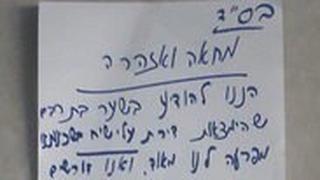 בס"ד
מחאה ואזהרה
הננו להודיע בשער בת רבים
שהימצאות דירת עלי שיח בשכונתנו
מפריעה לנו מאוד. ואנו דורשים